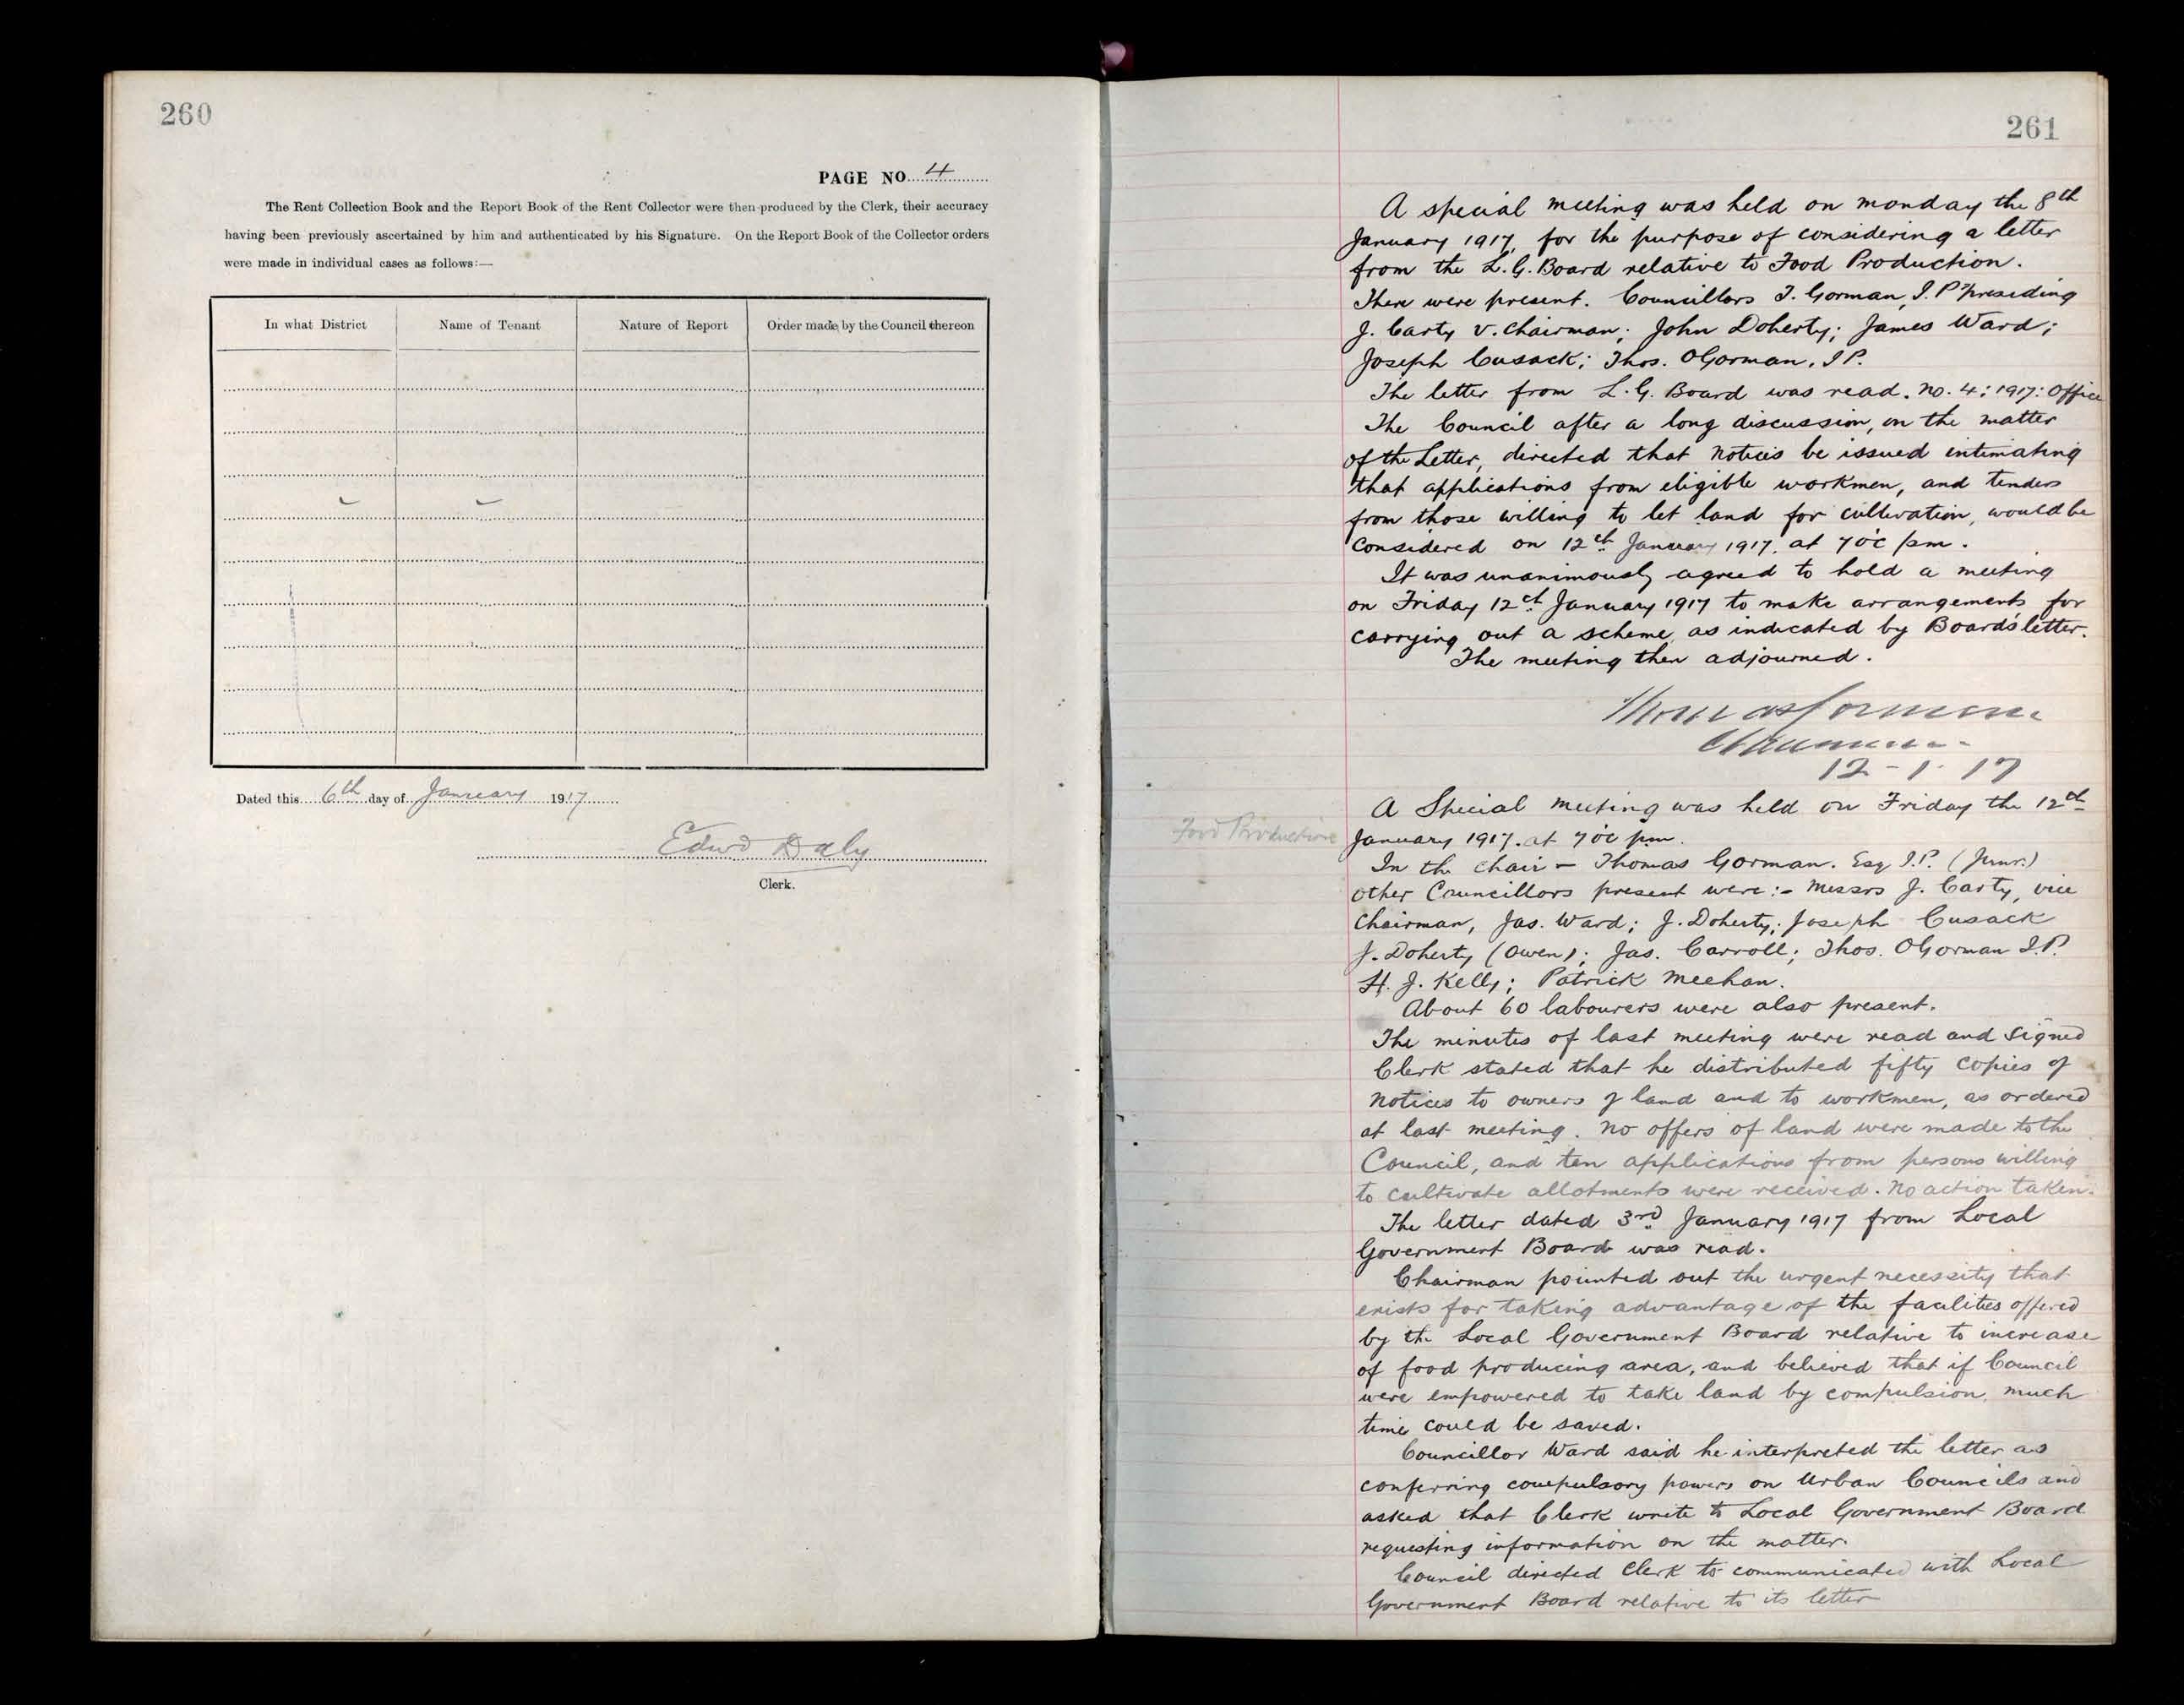 260
PAGE NO. 4
The Rent Collection Book and the Report Book of the Rent Collector were then produced by the Clerk, their accuracy
having been previously ascertained by him and authenticated by his Signature. On the Report Book of the Collector orders
were made in individual cases as follows:—
In what District Name of Tenant Nature of Report Order made by the Council thereon
Dated this 6th day of January 1917
Edwd Daly
Clerk.
261
A special meeting was held on monday the 8th
January 1917, for the purpose of considering a letter
from the L.G. Board relative to Food Production.
There were present. Councillors T. Gorman, J.P. presiding
J. Carty V. Chairman; John Doherty; James Ward;
Joseph Cusack; Thos. OGorman, J.P.
The letter from L.G. Board was read. No. 4: 1917: Office
The Council after a long discussion, on the matter
of the Letter, directed that notices be issued intimating
that applications from eligible workmen, and tenders
from those willing to let land for cultivation, would be
considered on 12th January 1917. at 7 oc pm.
It was unanimously agreed to hold a meeting
on Friday 12th January 1917 to make arrangements for
carrying out a scheme, as indicated by Board's letter.
The meeting then adjourned.
Thomas Gorman
Chairman
12-1-17
Food Production
A Special meeting was held on Friday the 12th
January 1917. at 7 oc pm.
In the chair – Thomas Gorman. Esq J.P. (Junr.)
other Councillors present were:- Messrs J. Carty, vice
Chairman, Jas. Ward; J. Doherty; Joseph Cusack
J. Doherty (Owen); Jas. Carroll; Thos. OGorman J.P.
H. J. Kelly; Patrick Meehan.
About 60 labourers were also present.
The minutes of last meeting were read and signed
Clerk stated that he distributed fifty copies of
notices to owners of land and to workmen, as ordered
at last meeting. No offers of land were made to the
Council, and ten applications from persons willing
to cultivate allotments were received. No action taken.
The letter dated 3rd January 1917 from Local
Government Board was read.
Chairman pointed out the urgent necessity that
exists for taking advantage of the facilities offered
by the Local Government Board relative to increase
of food producing area, and believed that if Council
were empowered to take land by compulsion, much
time could be saved.
Councillor Ward said he interpreted the letter as
conferring compulsory powers on Urban Councils and
asked that Clerk write to Local Government Board
requesting information on the matter.
Council directed Clerk to communicated with Local
Government Board relative to its letter